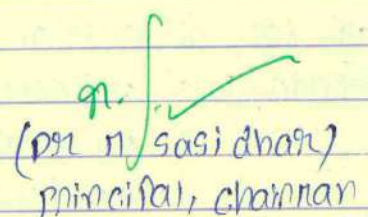 (Dr n sasidhar)
principal, chairman